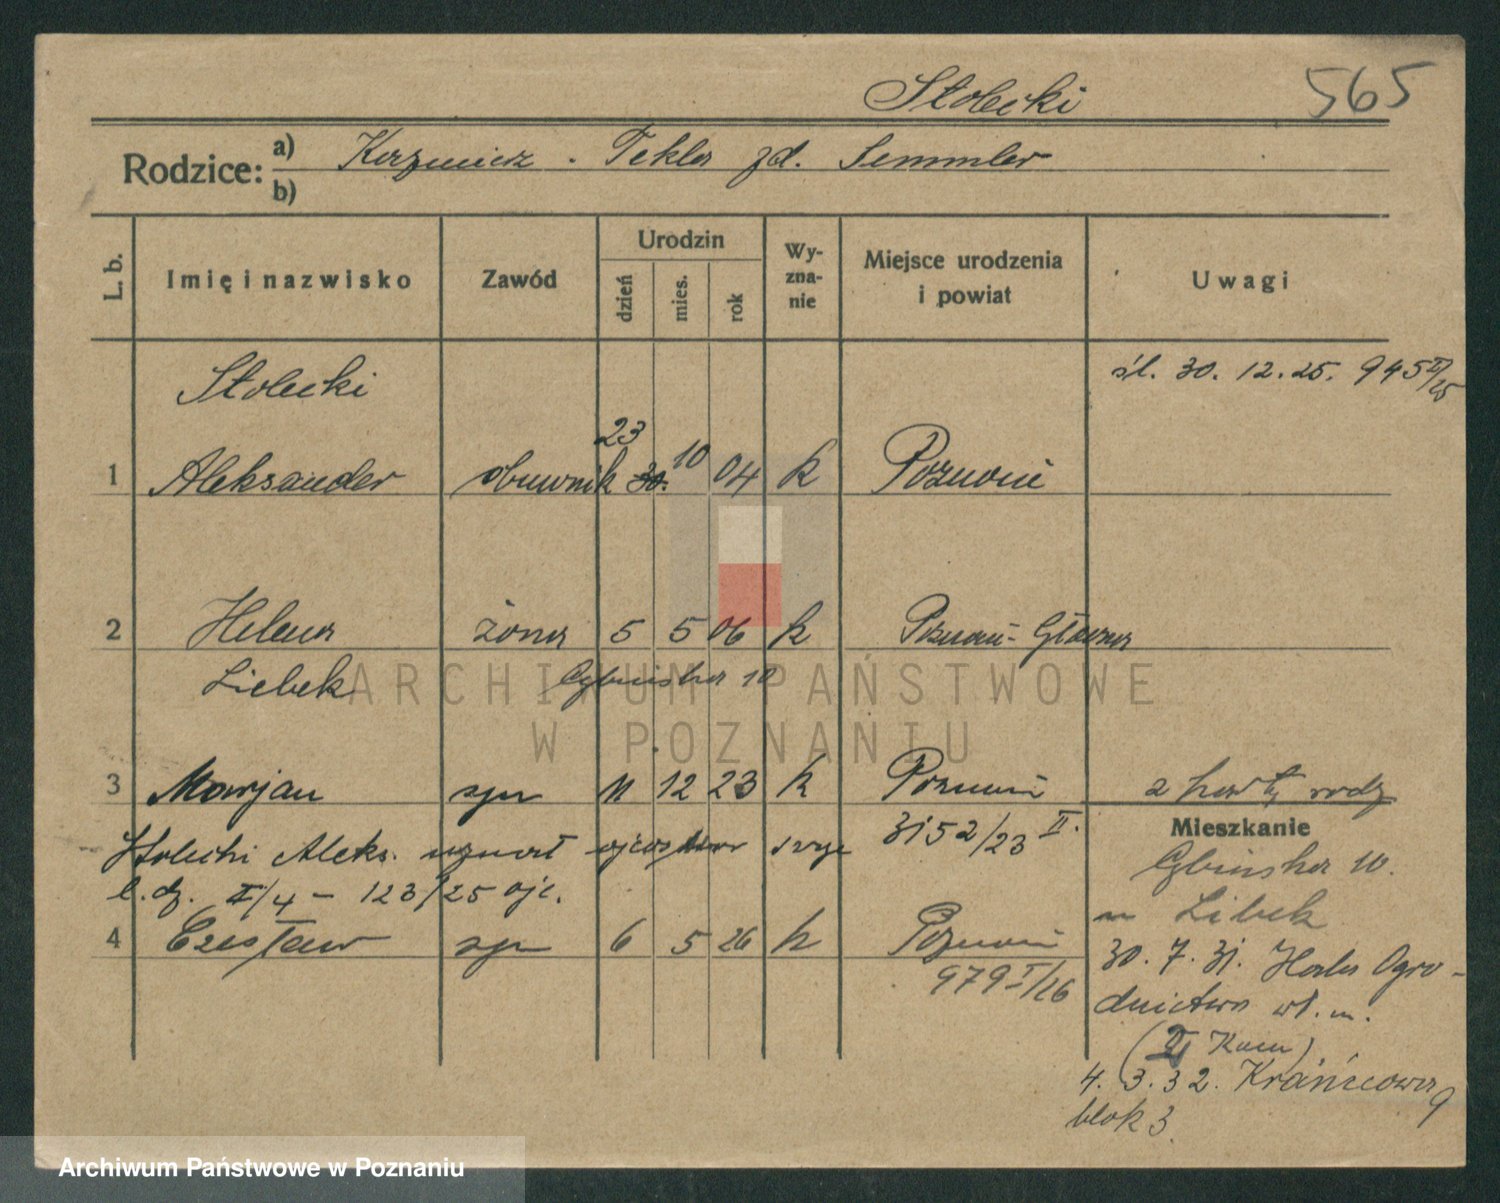 Stolecki 565
Rodzice: a) Kazmierz. Tekla zd. Semmler
b)
L. b. Imię i nazwisko Zawód Urodzin dzień mies. rok Wyznanie Miejsce urodzenia i powiat Uwagi
Stolecki śl. 30. 12. 25. 945 I/25
23
1 Aleksander obuwnik 30. 10 04 k Poznań
2 Helena żona 5 5 06 k Poznań-Główna
Liebek Cybińska 10
3 Marjan syn 11 12 23 k Poznań z karty rodz
3152/23 II.
Stolecki Aleks. uznał ojcostwo
l. dz. II/4 – 123/25 ojc.
4 Czesław syn 6 5 26 k Poznań
979 I/26
Mieszkanie
Cybińska 10.
u Libek
30. 7. 31. Ogro-
dnictwo wł. m.
4. 3. 32. Krańcowa 9
blok 3.
ARCHIWUM PAŃSTWOWE
W POZNANIU
Archiwum Państwowe w Poznaniu